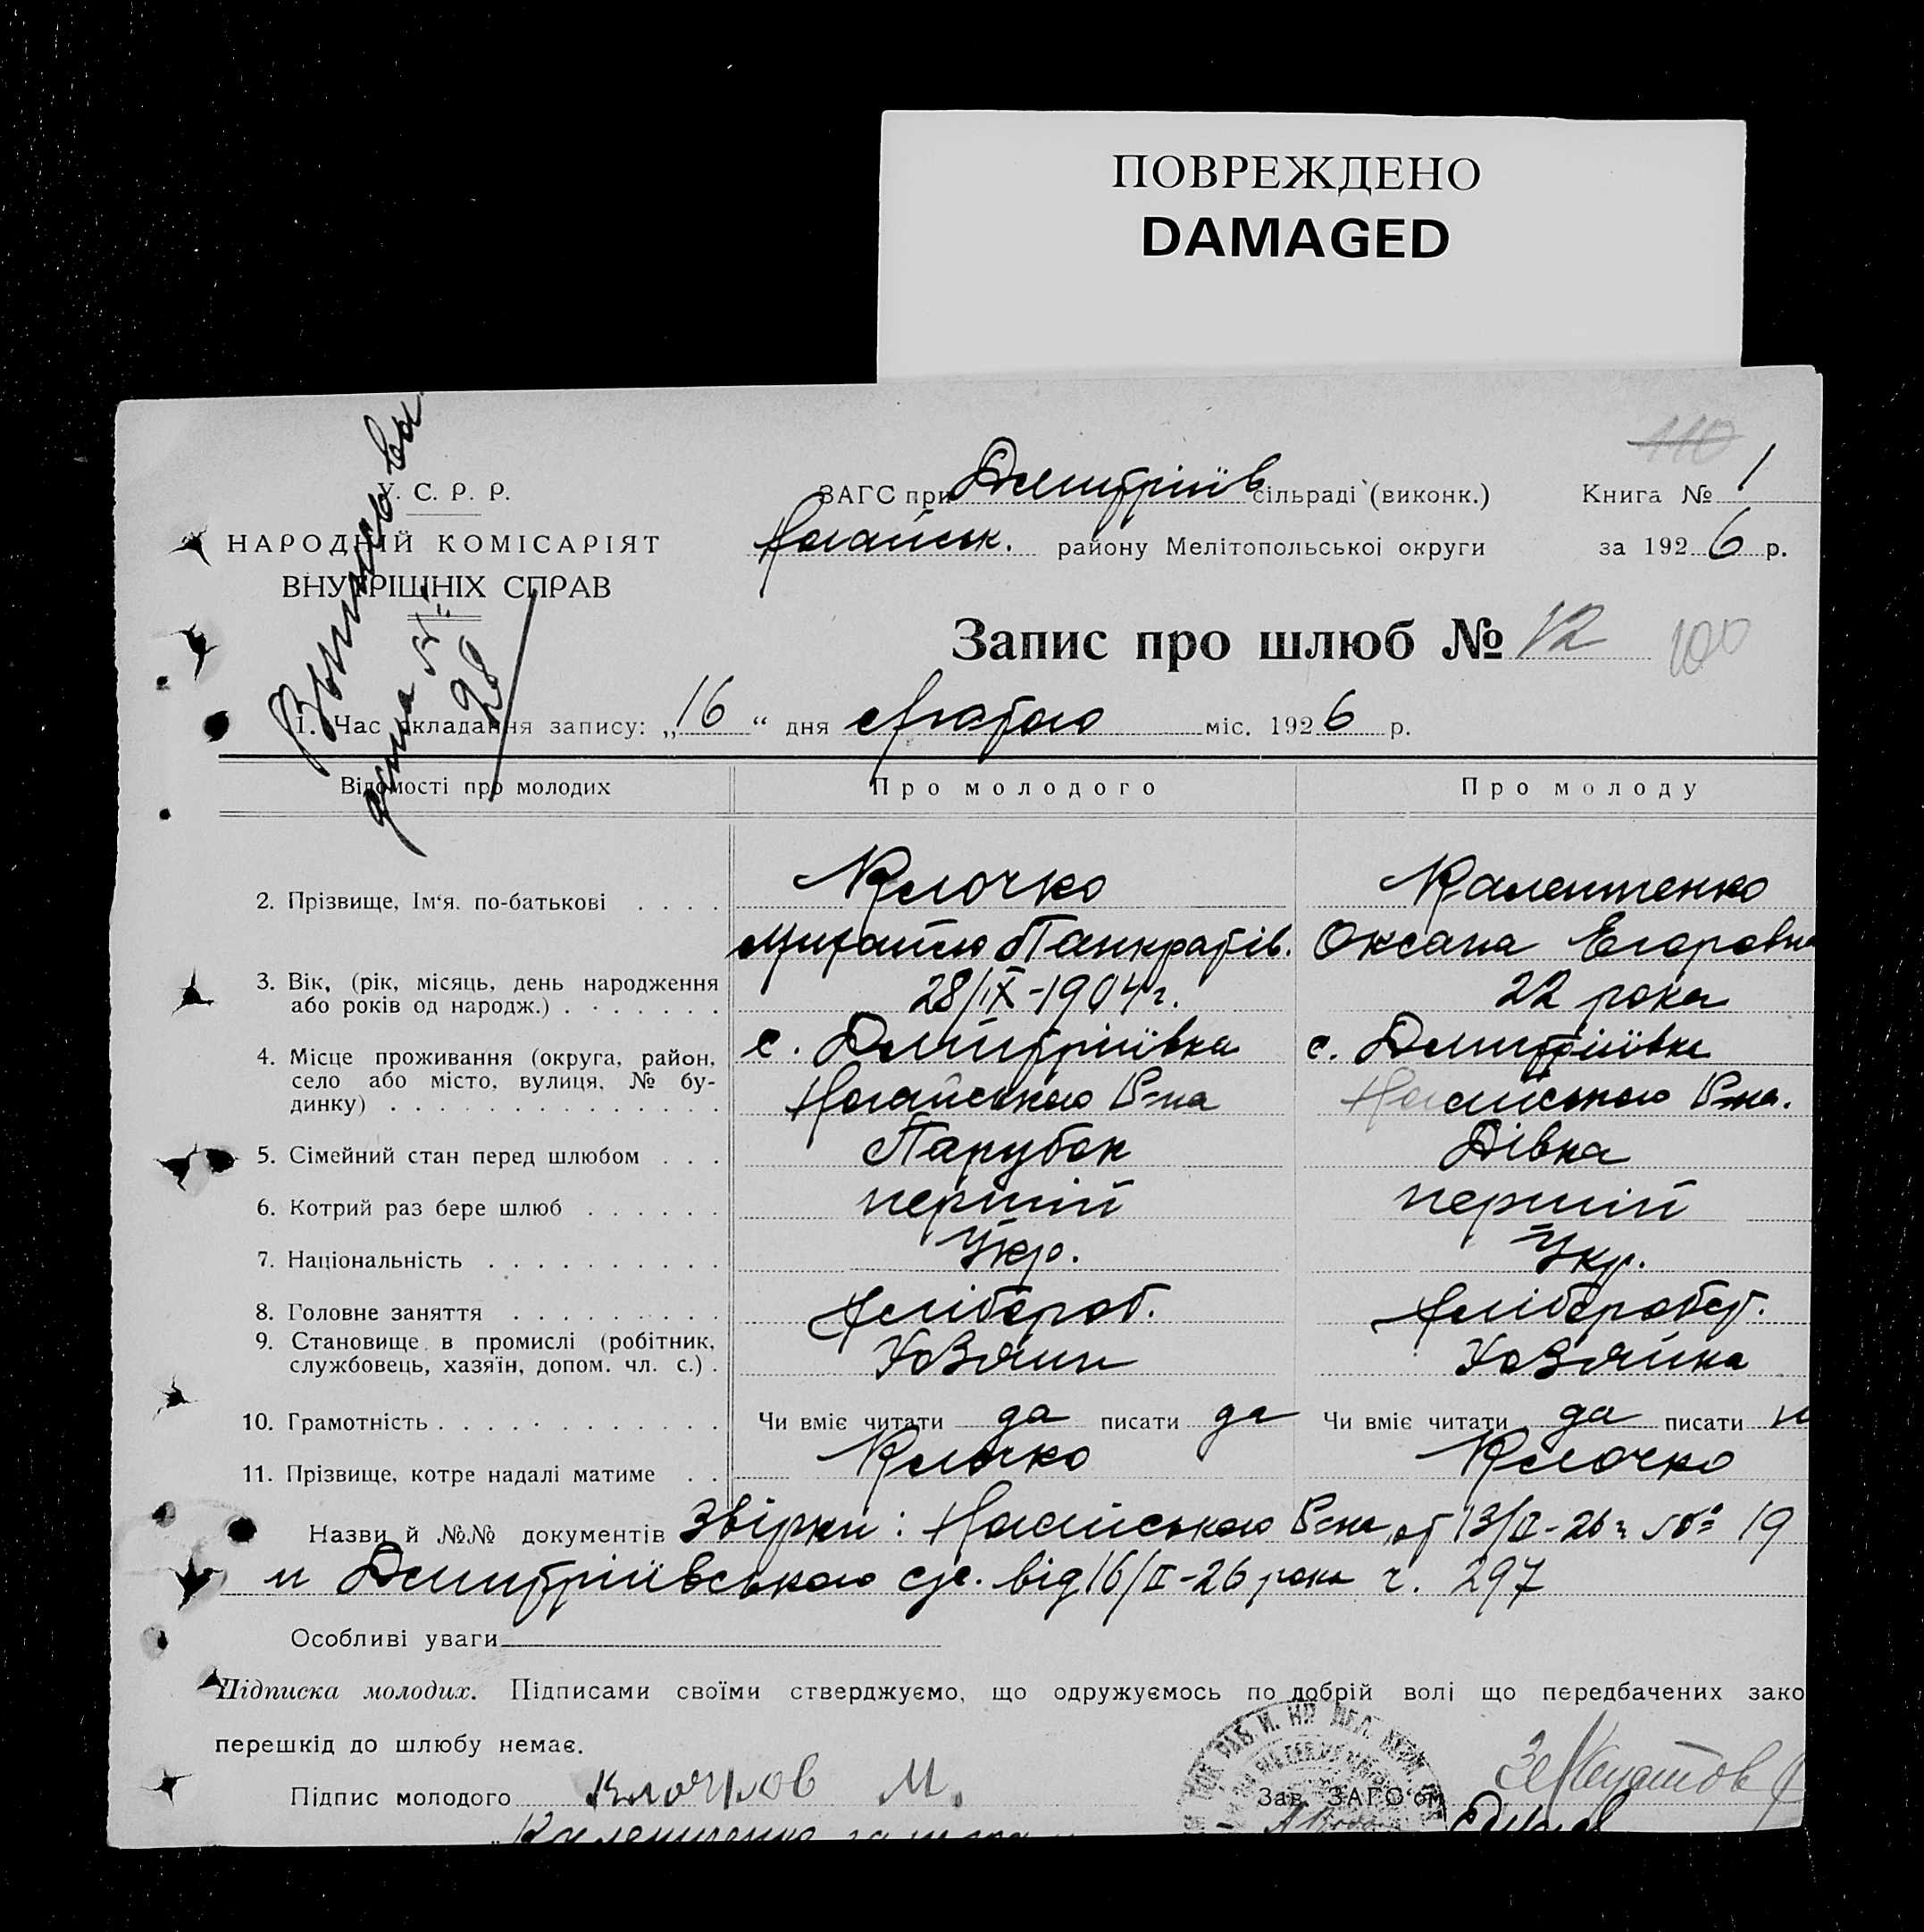 ПОВРЕЖДЕНО
DAMAGED
110
У. С. Р. Р.
НАРОДНІЙ КОМІСАРІЯТ
ВНУТРІШНІХ СПРАВ
28
ЗАГС при Дмитріїв сільраді (виконк.) Книга № 1
Ногайськ. району Мелітопольської округи за 1926 р.
Запис про шлюб № 12 100
1. Час складання запису: „16“ дня Лютого міс. 1926 р.
Відомості про молодих Про молодого Про молоду
2. Прізвище, Ім‘я. по-батькові Клочко Калениченко
Михайло Панкратів. Оксана Егоровна
3. Вік, (рік, місяць, день народження
або років од народж.) 28/IX-1904 г. 22 рока
4. Місце проживання (округа, район, с. Дмитріївка с. Дмитріївка
село або місто, вулиця, № бу-
динку) Ногайського Р-на Ногайського Р-на.
5. Сімейний стан перед шлюбом Парубок Дівка
6. Котрий раз бере шлюб перший перший
7. Національність Укр. Укр.
8. Головне заняття Хлібороб. Хлібороб.
9. Становище в промислі (робітник,
службовець, хазяїн, допом. чл. с.) Хозяин Хозяйка
10. Грамотність Чи вміє читати да писати да Чи вміє читати да писати
11. Прізвище, котре надалі матиме Клочко Клочко
Назви й №№ документів Звірки: Ногайського Р-на от 13/II-26 г № 19
и Дмитріївського с/с. від 16/II-26 рока ч. 297
Особливі уваги
Підписка молодих. Підписами своїми стверджуємо, що одружуємось по добрій волі що передбачених зако
перешкід до шлюбу немає.
Підпис молодого Клочков М. Зав. ЗАГС‘ом